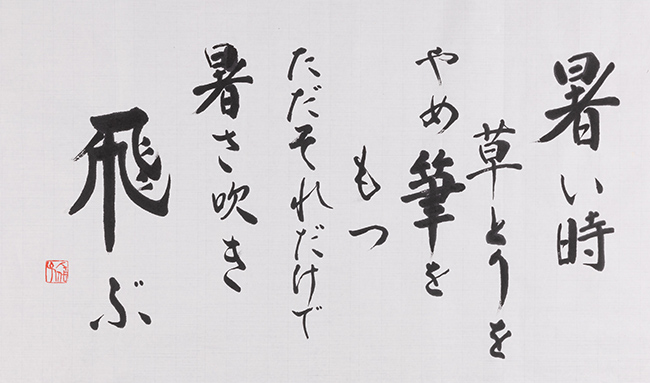 暑い時
草とりを
やめ筆を
もつ
ただそれだけで
暑さ吹き
飛ぶ